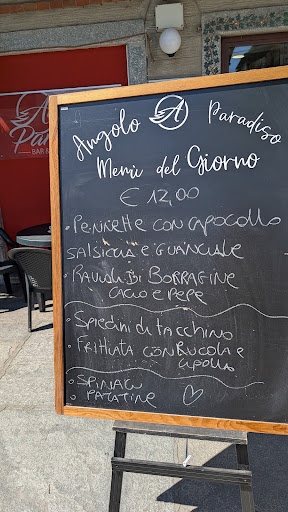 A
Par
BAR R
Angolo A Paradiso
Menù del Giorno
€ 12,00
• PENNETTE CON CAPOCOLLO
SALSICCIA E GUANCIALE
• RAVIOLI DI BORRAGINE
CACIO E PEPE
• SPIEDINI DI TACCHINO
• FRITTATA CON RUCOLA E
CIPOLLA
• SPINACI
• PATATINE